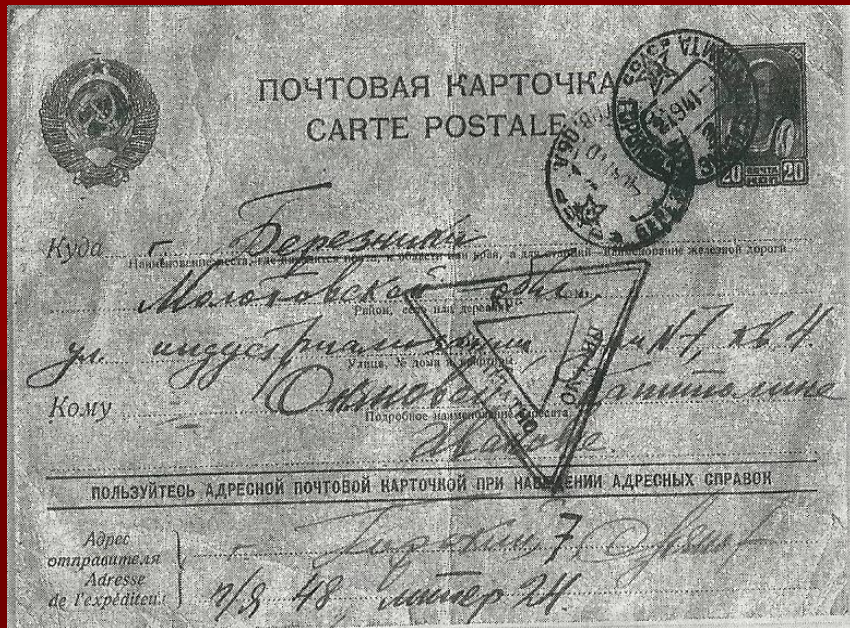 ПОЧТОВАЯ КАРТОЧКА
CARTE POSTALE
20 ПОЧТА 20
СССР
Куда г. Березники
Наименование места, где находится почта, и области или края, а для станций – наименование железной дороги
Молотовской обл.
Район, село или деревня
ул. индустриализации № 7, кв 4
Улица, № дома и квартиры
Кому Капитолине
Подробное наименование адресата
Ивановне.
ПОЛЬЗУЙТЕСЬ АДРЕСНОЙ ПОЧТОВОЙ КАРТОЧКОЙ ПРИ НАВЕДЕНИИ АДРЕСНЫХ СПРАВОК
Адрес отправителя г. Горький, 7,
Adresse de l'expéditeur п/я 48, литер 24.